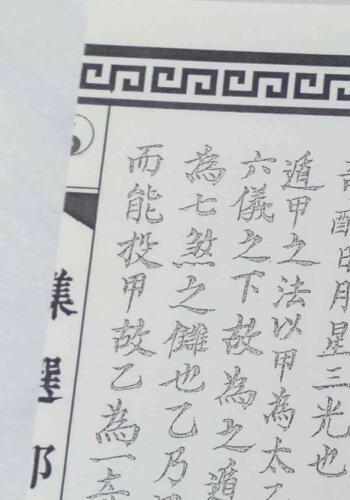 配日月星三光也
遁甲之法以甲為太乙
六儀之下故為之遁
為七煞之讎也乙乃
而能投甲故乙為一
集